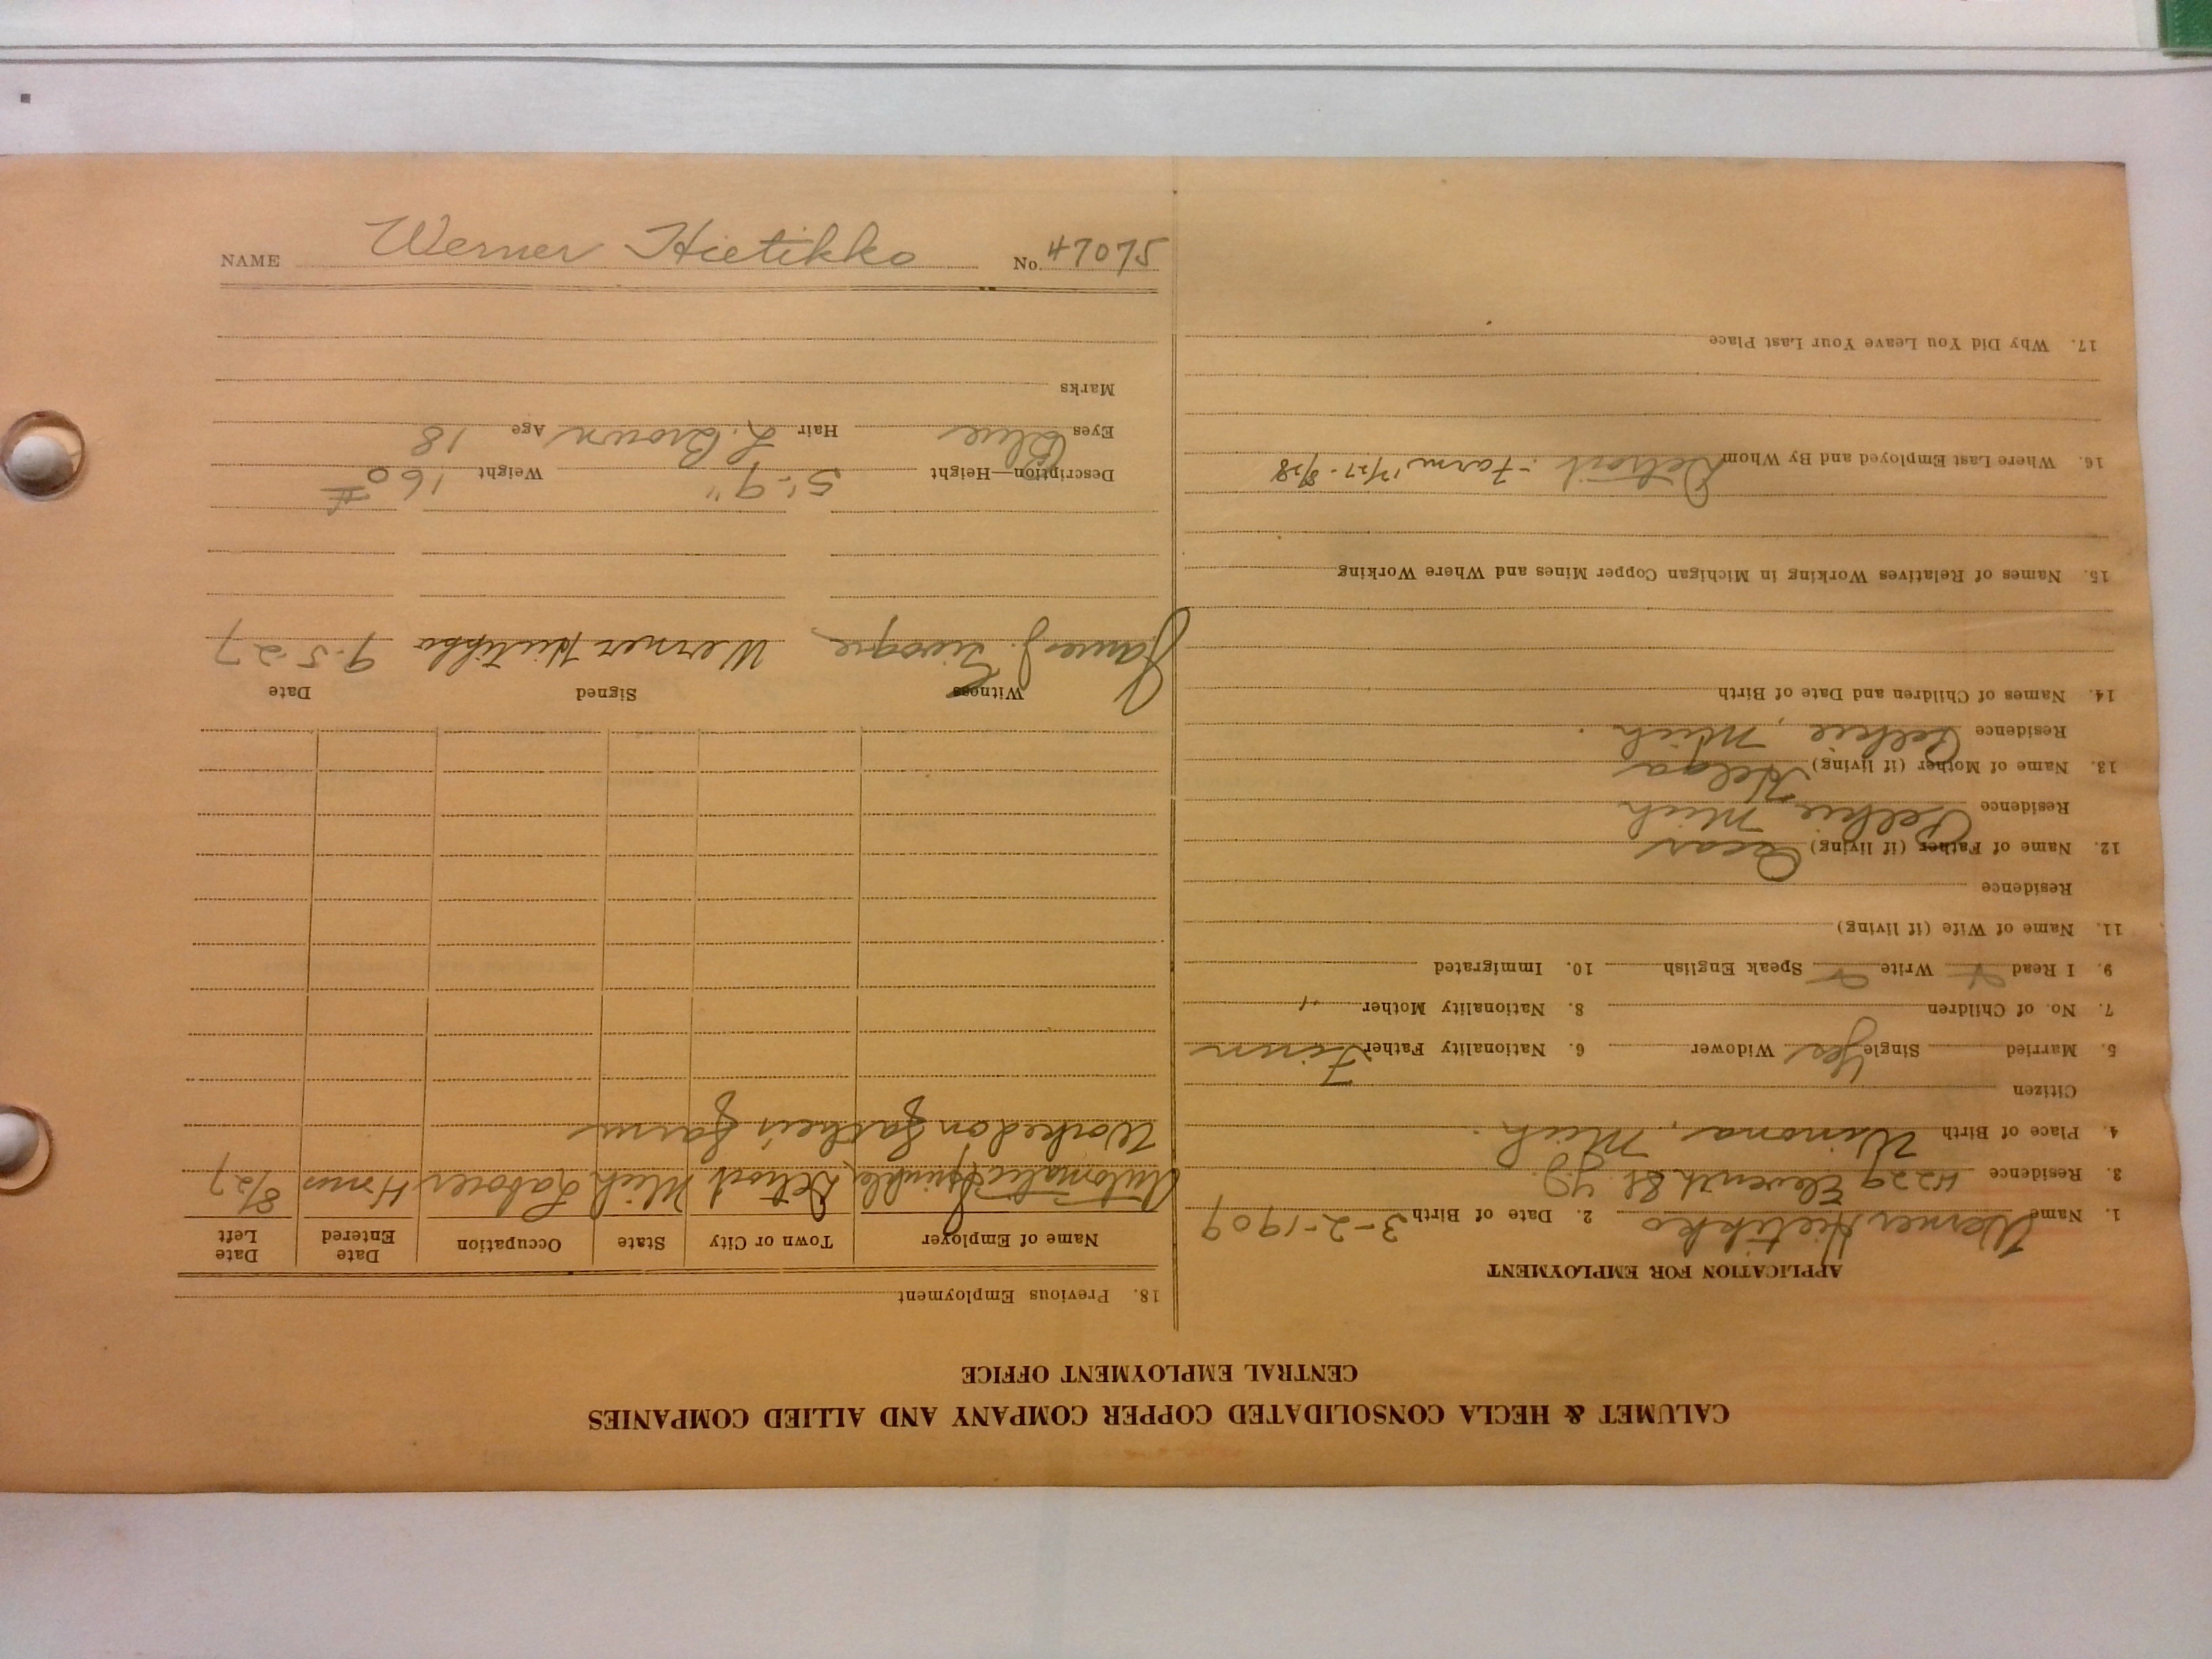 NAME Werner Hietikko No. 47075
CALUMET & HECLA CONSOLIDATED COPPER COMPANY AND ALLIED COMPANIES
CENTRAL EMPLOYMENT OFFICE
APPLICATION FOR EMPLOYMENT
1. Name Werner Hietikko 2. Date of Birth 3-2-1909
3. Residence 4229 Eleventh St.
4. Place of Birth Winona, Mich.
Citizen
5. Married Single Yes Widower 6. Nationality Father Finn
7. No. of Children 8. Nationality Mother "
9. I Read Write Speak English 10. Immigrated
11. Name of Wife (if living)
Residence
12. Name of Father (if living) Oscar
Residence Pelkie Mich
13. Name of Mother (if living) Helga
Residence Pelkie, Mich.
14. Names of Children and Date of Birth
15. Names of Relatives Working in Michigan Copper Mines and Where Working
16. Where Last Employed and By Whom Detroit - Farm 12/27 - 8/28
17. Why Did You Leave Your Last Place
18. Previous Employment
Name of Employer Town or City State Occupation Date Entered Date Left
Automatic Sprinkler Detroit Mich Laborer 4 mos 8/27
Worked on father's farm
Witness Signed Date
James J. Werner Hietikko 9-5-27
Description—Height 5'-9" Weight 160 #
Eyes Blue Hair L. Brown Age 18
Marks